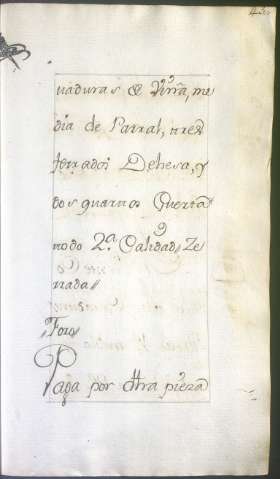 vaduras de Viña, me
dia de Parral, tres
ferrados Dehesa, y
dos quartos Huerta
todo 2ª Calidad Ze
rrada
Foro
Paga por dha pieza